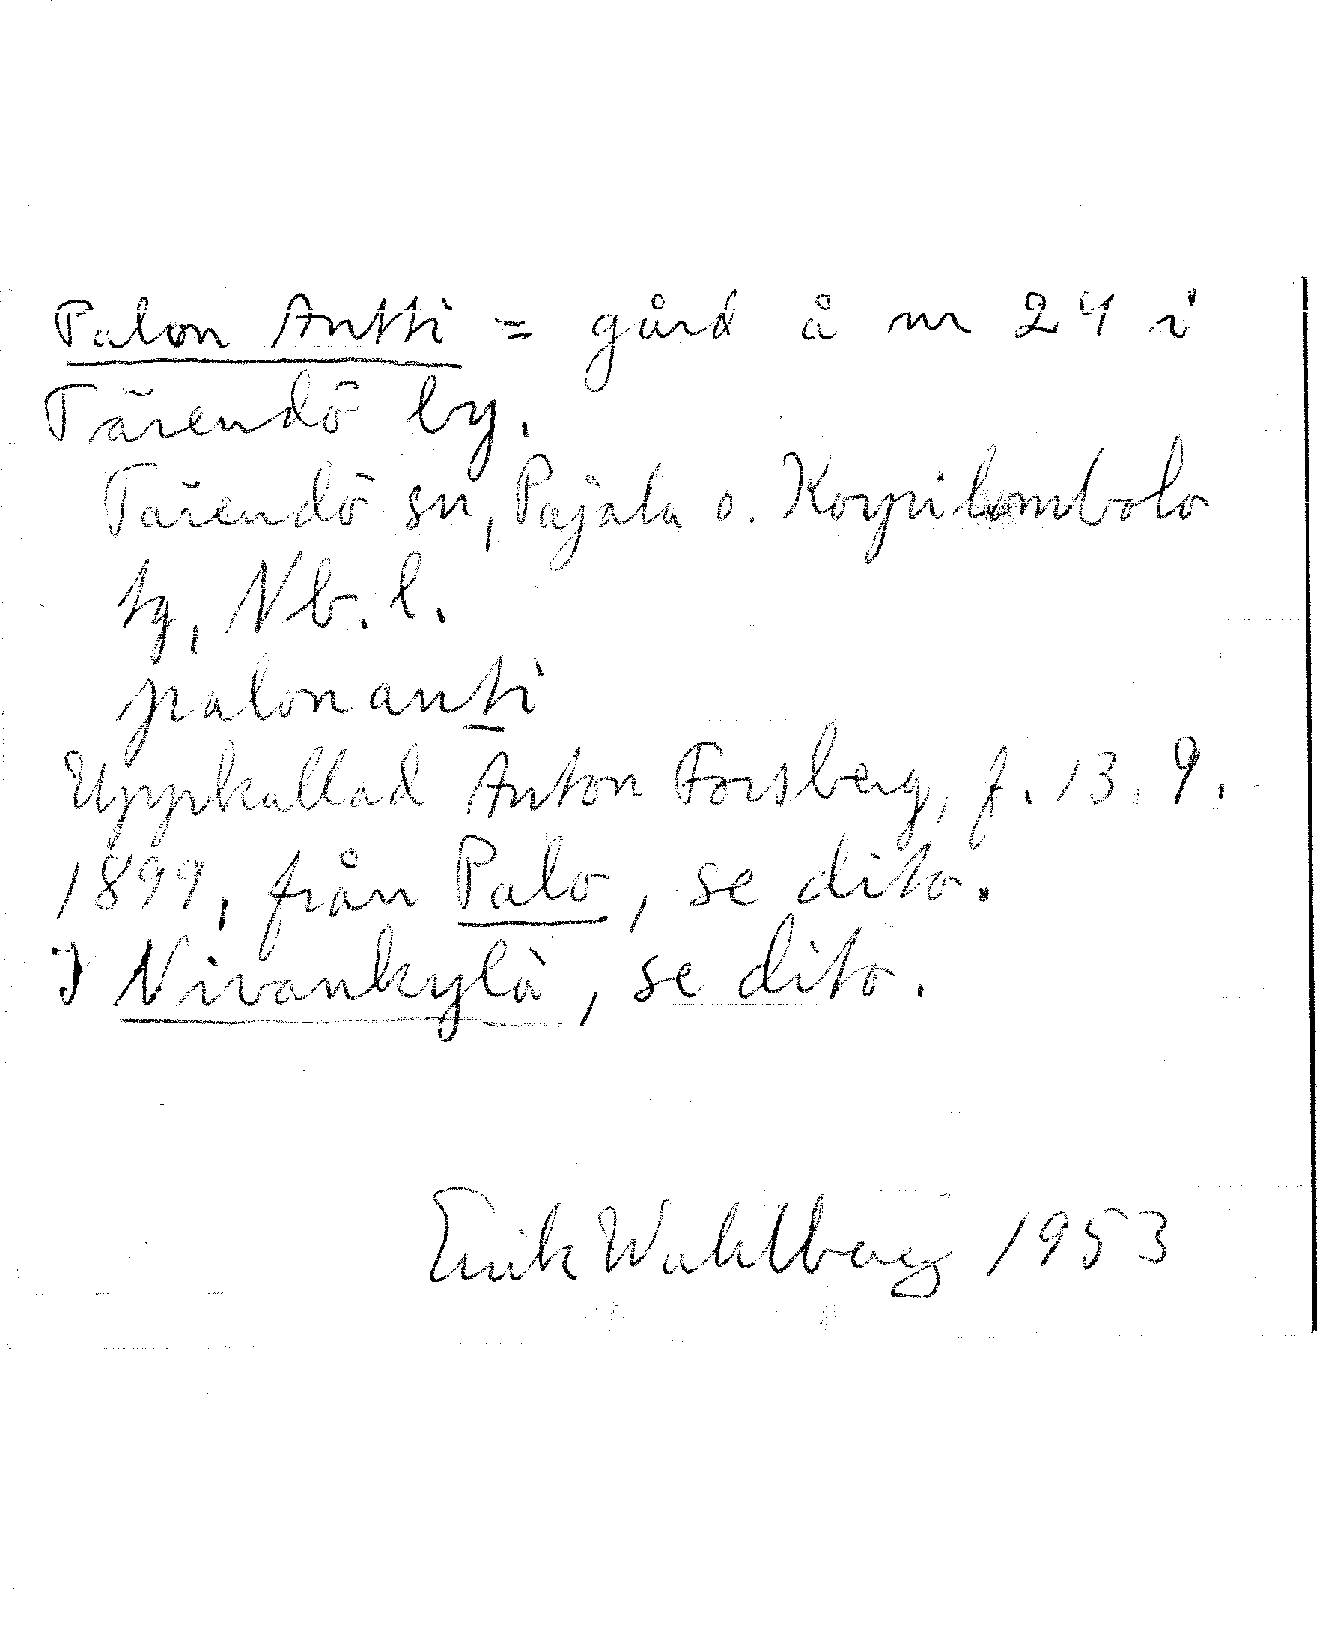 Palon Antti = gård å nr 24 i
Tärendö by.
Tärendö sn, Pajala o. Korpilombolo
tg, Nb. l.
palonanti
Uppkallad Anton Forsberg, f. 13. 9.
1899, från Palo, se dito.
I Nivankylä, se dito.
Erik Wahlberg 1953